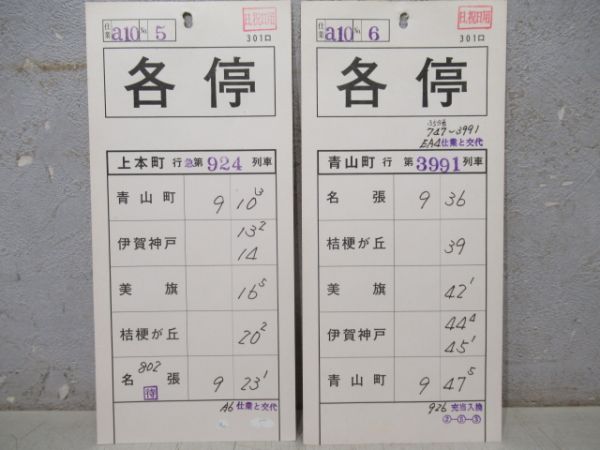 仕業 a10 No. 5
日、祝日用
301口
各停
上本町 行 急 第 924 列車
青山町 9 10
伊賀神戸 13²
14
美旗 16⁵
桔梗が丘 20²
802
名張 9 23¹
待
A6 仕業と交代
仕業 a10 No. 6
日、祝日用
301口
各停
747~3991
EA4 仕業と交代
青山町 行 第 3991 列車
名張 9 36
桔梗が丘 39
美旗 42¹
伊賀神戸 44⁴
45¹
青山町 9 47⁵
926 充当入換
②-⑤-③